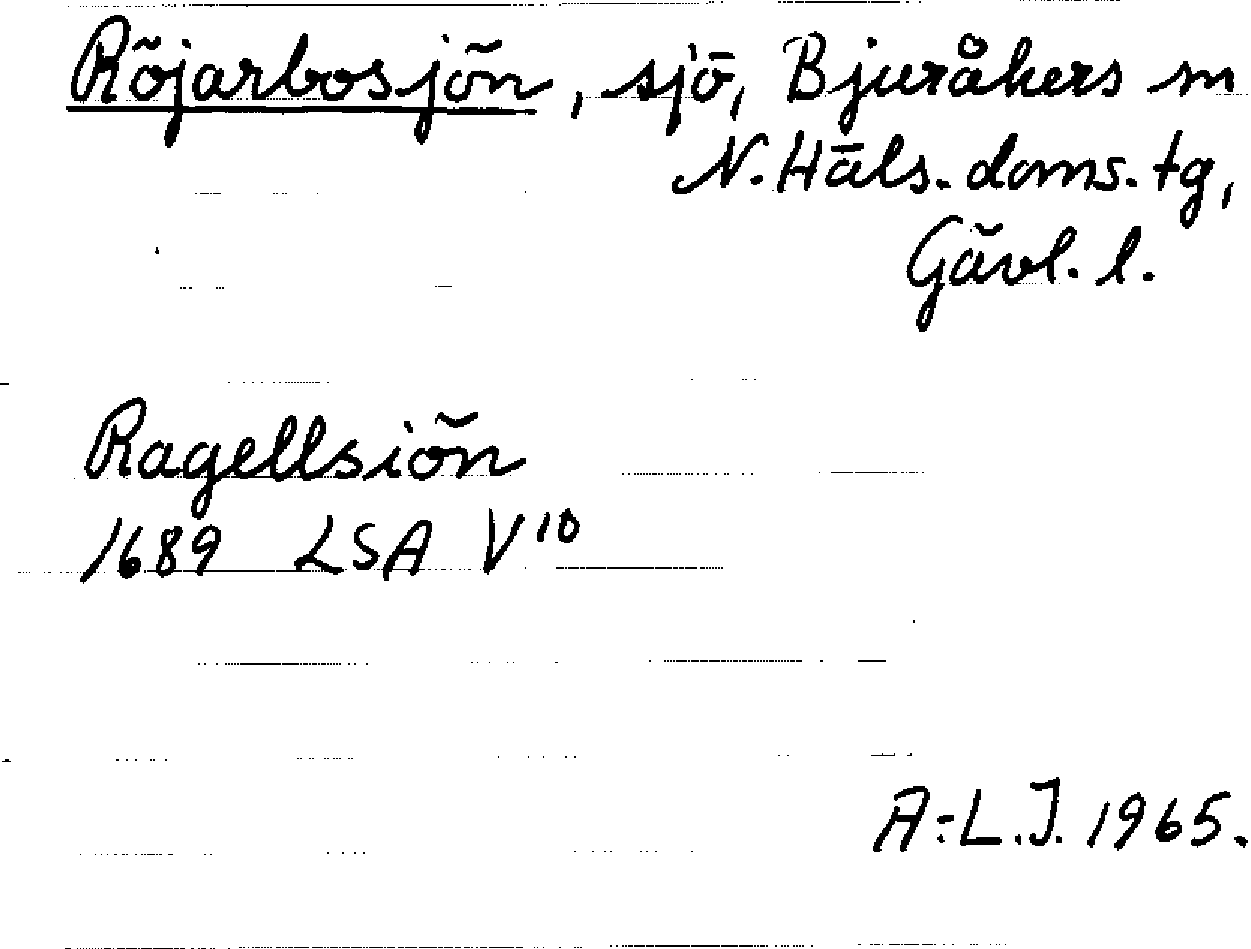 Röjarbosjön, sjö, Bjuråkers sn
N. Häls. doms. tg,
Gävl. l.
Ragellsiön
1689 LSA V¹⁰
A.-L. J. 1965.